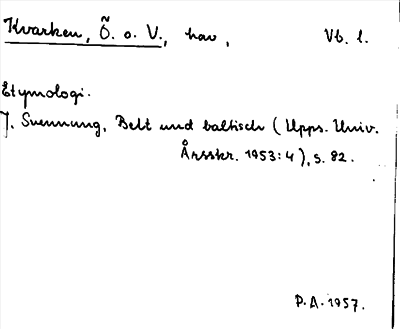 Kvarken, Ö. o. V., hav, Vb. l.
Etymologi.
J. Svennung, Belt und baltisch (Upps. Univ.
Årsskr. 1953:4), s. 82.
P.A. 1957.